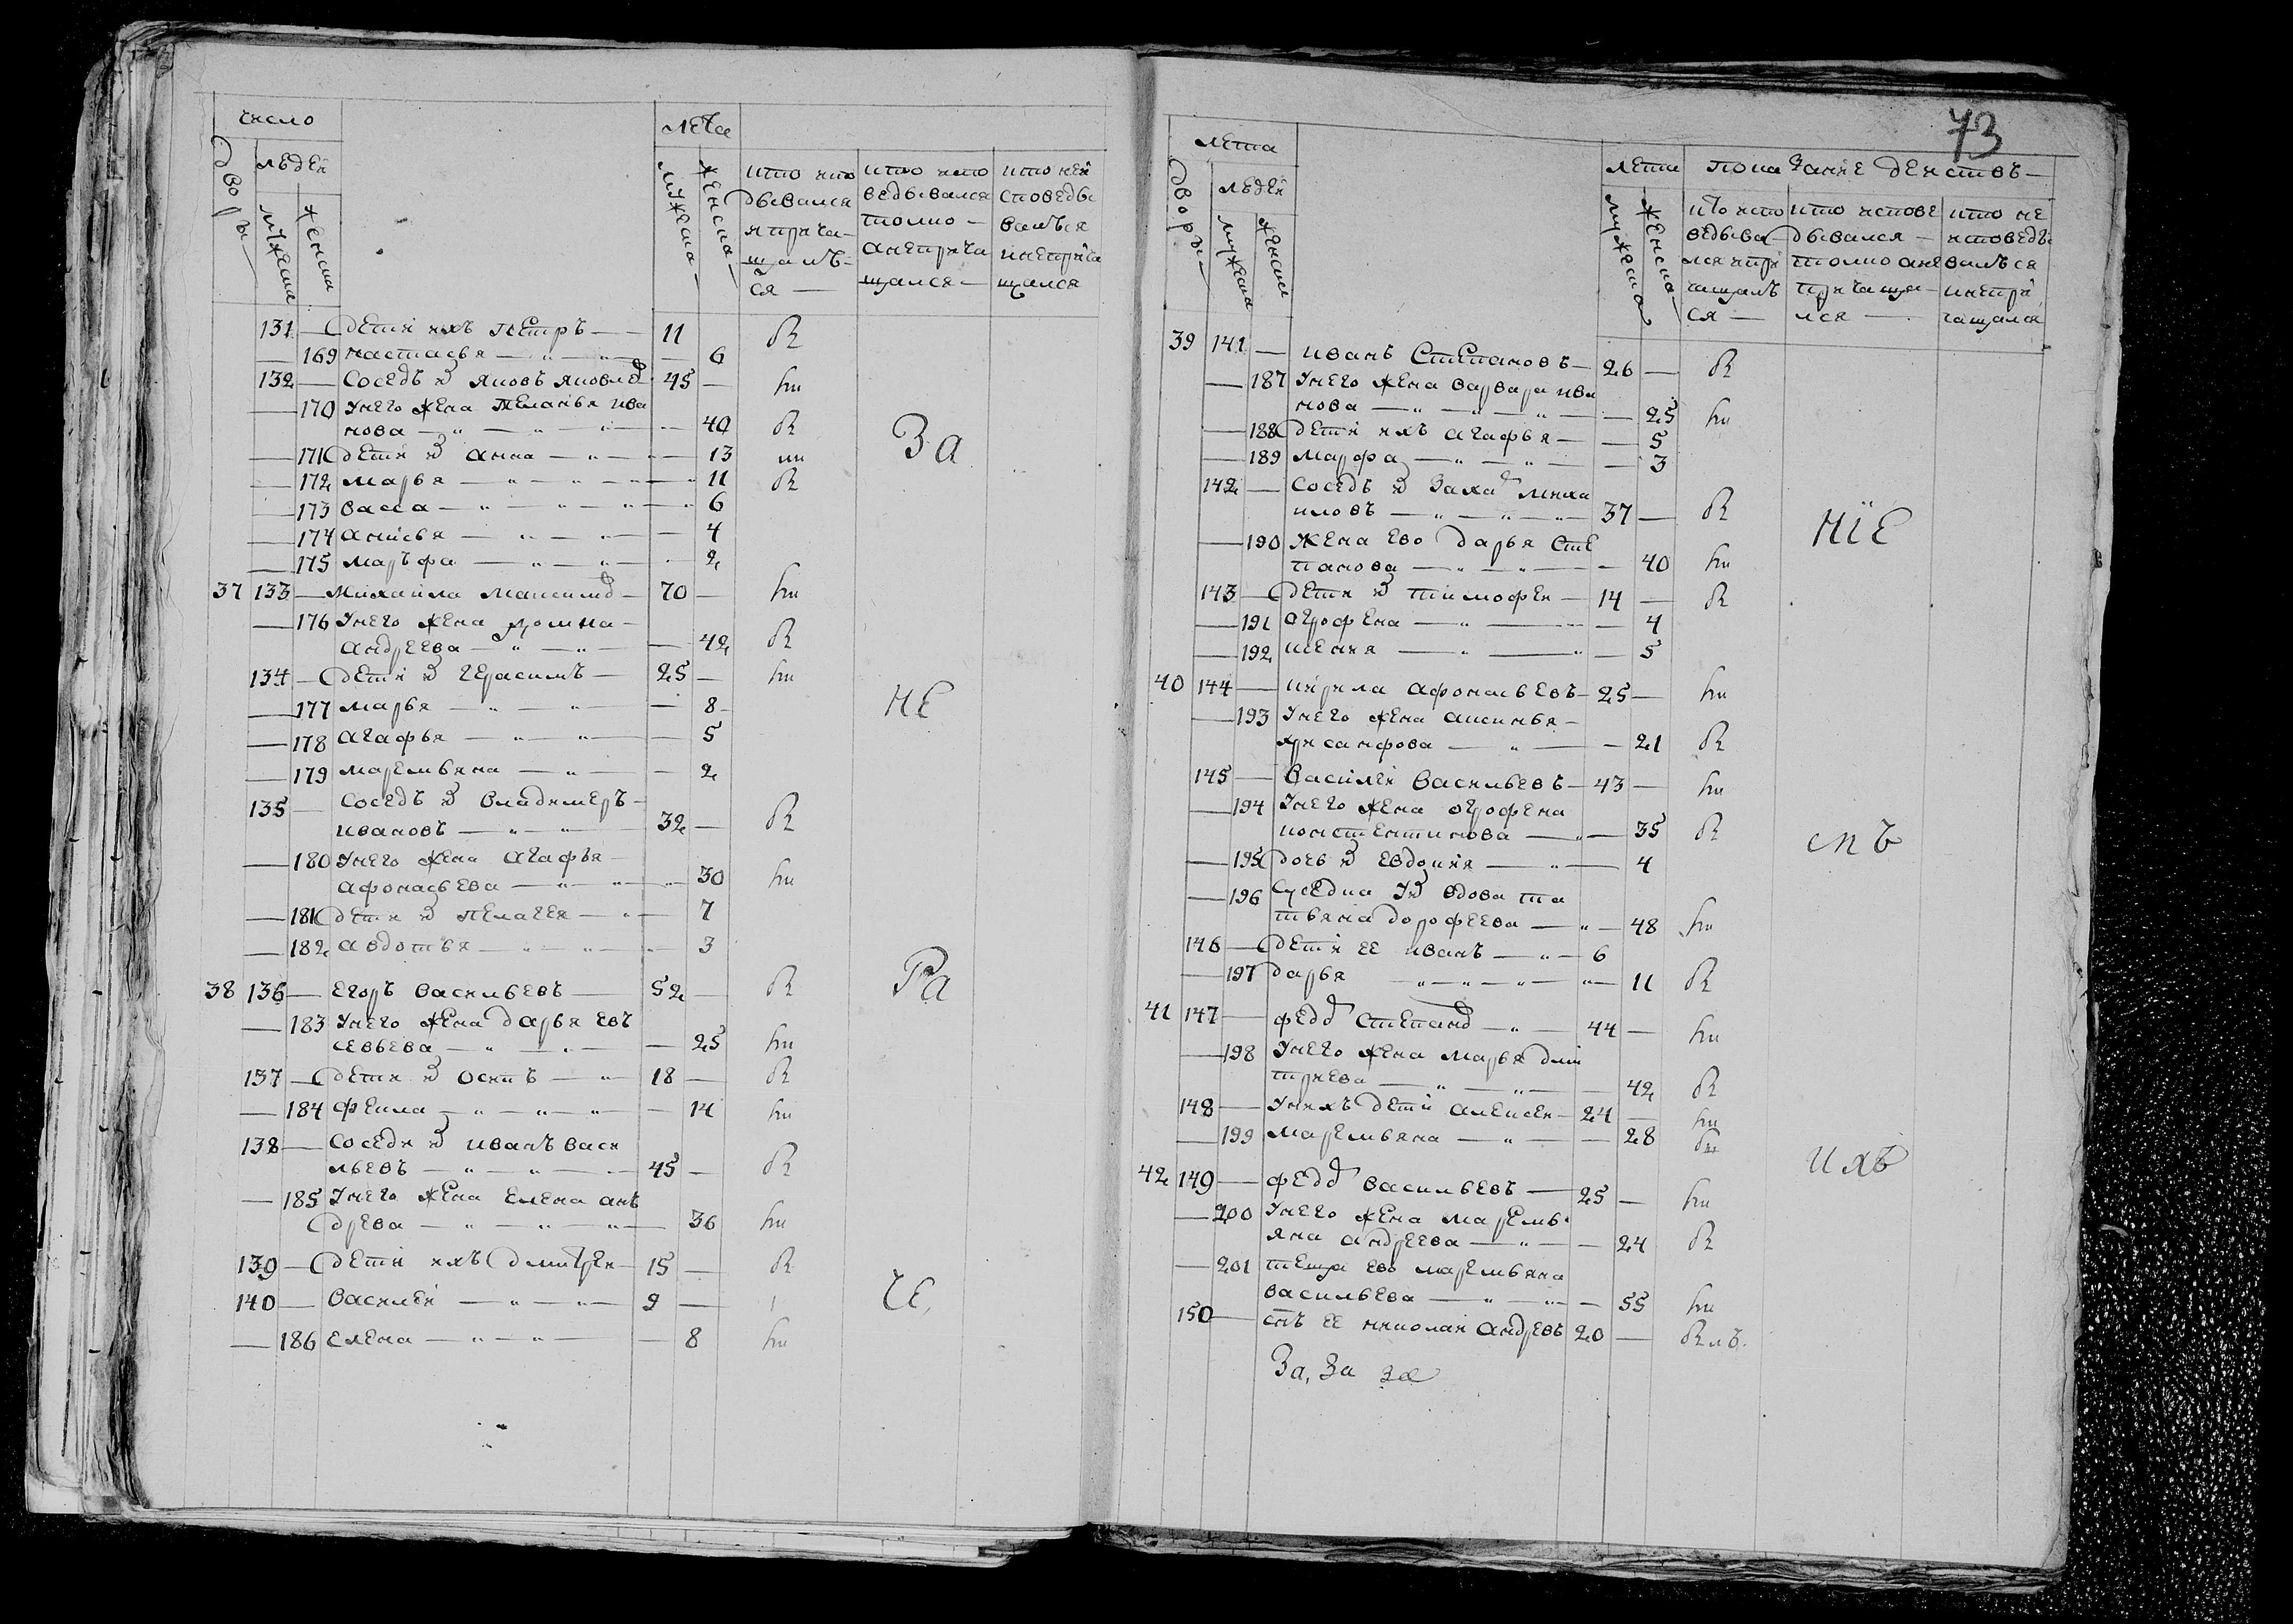 число
дворы
людей
мужеска
женска
лета
мужеска
женска
кто испо
дывался
и прича-
щалъ-
ся —
кто испо
ведывался
толко —
а не прича
щался —
кто не и
споведы
валъся
и не прича
щался
131 — дети ихъ петръ — 11
— 169 настасья — " — " — 6
132 — соседъ яковъ яковле 45 —
— 170 у него жена пеланья ива
нова — " — " — " — 40
— 171 дети анна — " — 13
— 172 марья — " — " — " — 11
— 173 васса — " — " — " — 6
— 174 анисья — " — " — 4
— 175 маръфа — " — " — 2
37 133 — михаила максимо — 70 —
— 176 у него жена
андреева — " — " — 42
134 — дети герасимъ — 25 —
— 177 марья — " — " — 8
— 178 агафья — " — " — 5
— 179 маремьяна — " — 2
135 — соседъ владимеръ —
ивановъ — " — " — 32 —
— 180 у него жена агафья —
афонасьева — " — " — 30
— 181 дети пелагея — " — 7
— 182 авдотья — " — " — 3
38 136 — егоръ васильевъ — 52 —
— 183 у него жена дарья евъ
севьева — " — " — 25
137 — дети осипъ — " 18 —
— 184 фекла — " — " — " — 14
138 — соседи иванъ васи
льевъ — " — " — 45 —
— 185 у него жена елена анъ
древа — " — " — " — 36
139 — дети ихъ дмитрей — 15 —
140 — василей — " — " — 9 —
— 186 елена — " — " — 8
За
не
Ра
че,
73
лета
дворы
людей
мужеска
женска
лета
мужеска
женска
показание действъ —
кто испо
ведыва
лся и при
чащалъ
ся —
кто испове
дывался —
толко а не
причаща-
лся —
кто не
исповеды
валъся
и не при
чащался
39 141 — иванъ степановъ — 26 —
— 187 у него жена варвара ива
нова — " — " — " — 25
— 188 дети ихъ агафья — 5
— 189 марфа — " — " — 3
142 — соседъ заха михаи
иловъ — " — " — " 37 —
— 190 жена ево дарья сте
панова — " — " — 40
143 — дети тимофей — 14 —
— 191 огрофена — " — 4
— 192 ксения — " — " — 5
40 144 — кирила афонасьевъ — 25 —
— 193 у него жена аксинья —
хрисанфова — " — 21
145 — василей васильевъ — 43 —
— 194 у него жена огрофена
констентинова — " — 35
— 195 дочь евдокия — " — 4
— 196 суседка вдова та
тьяна дорофеева — " — 48
146 — дети ее иванъ — " — 6
— 197 дарья " — " — " — " — 11
41 147 — федо степано — " — 44 —
— 198 у него жена марья дми
триева — " — " — 42
148 — у нихъ дети алексей — 24 —
— 199 маремьяна — " — 28
42 149 — федо васильевъ — 25 —
— 200 у него жена маремь
яна андреева — " — 24
— 201 теща ево маремьяна
васильева — " — " — 55
150 — снъ ее николай андревъ 20 —
За, За за
нїе
мъ
ихъ